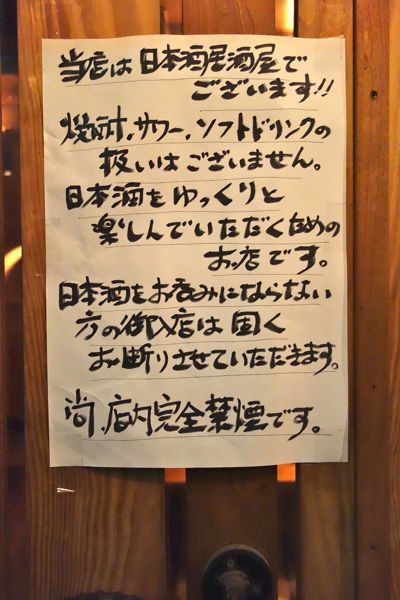 当店は日本酒居酒屋で
ございます!!
焼酎、サワー、ソフトドリンクの
扱いはございません。
日本酒をゆっくりと
楽しんでいただくための
お店です。
日本酒をお呑みにならない
方の御入店は固く
お断りさせていただきます。
尚、店内完全禁煙です。